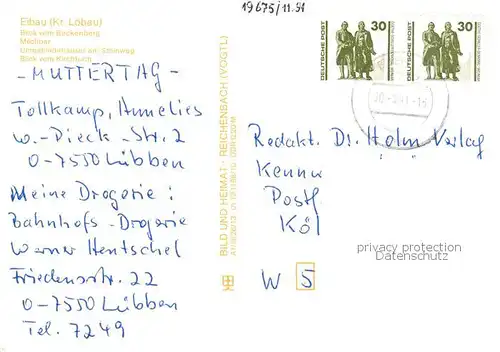 19675/11.91
Eibau (Kr. Löbau)
Blick vom Beckenberg
Blick vom Kirchturm
- MUTTERTAG -
Tollkamp, Annelies
W.-Pieck-Str. 2
O-7550 Lübben
Meine Drogerie:
Bahnhofs-Drogerie
Werner Hentschel
Friedensstr. 22
O-7550 Lübben
Tel. 7249
BILD UND HEIMAT · REICHENBACH (VOGTL)
DEUTSCHE POST
30
DEUTSCHE POST
30
Redakt. Dr. Holm Verlag
Kennw
Postf
Köl
W 5
privacy protection
Datenschutz